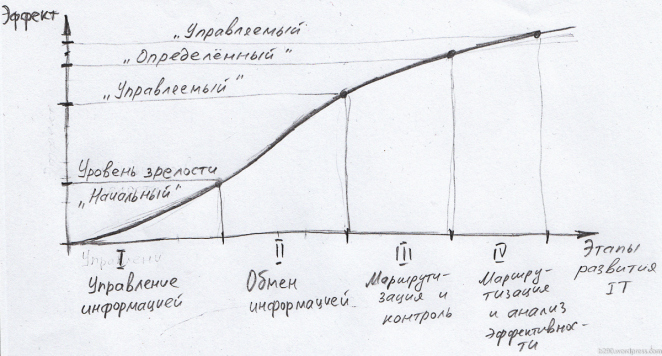 Эффект
„Управляемый
„Определённый"
„Управляемый"
Уровень зрелости
„Начальный"
Управлени
I
II
III
IV
Этапы
развития
IT
Управление
информацией
Обмен
информацией
Маршрути-
зация и
контроль
Маршру-
тизация
и анализ
эффективнос-
ти
b2blog.wordpress.com